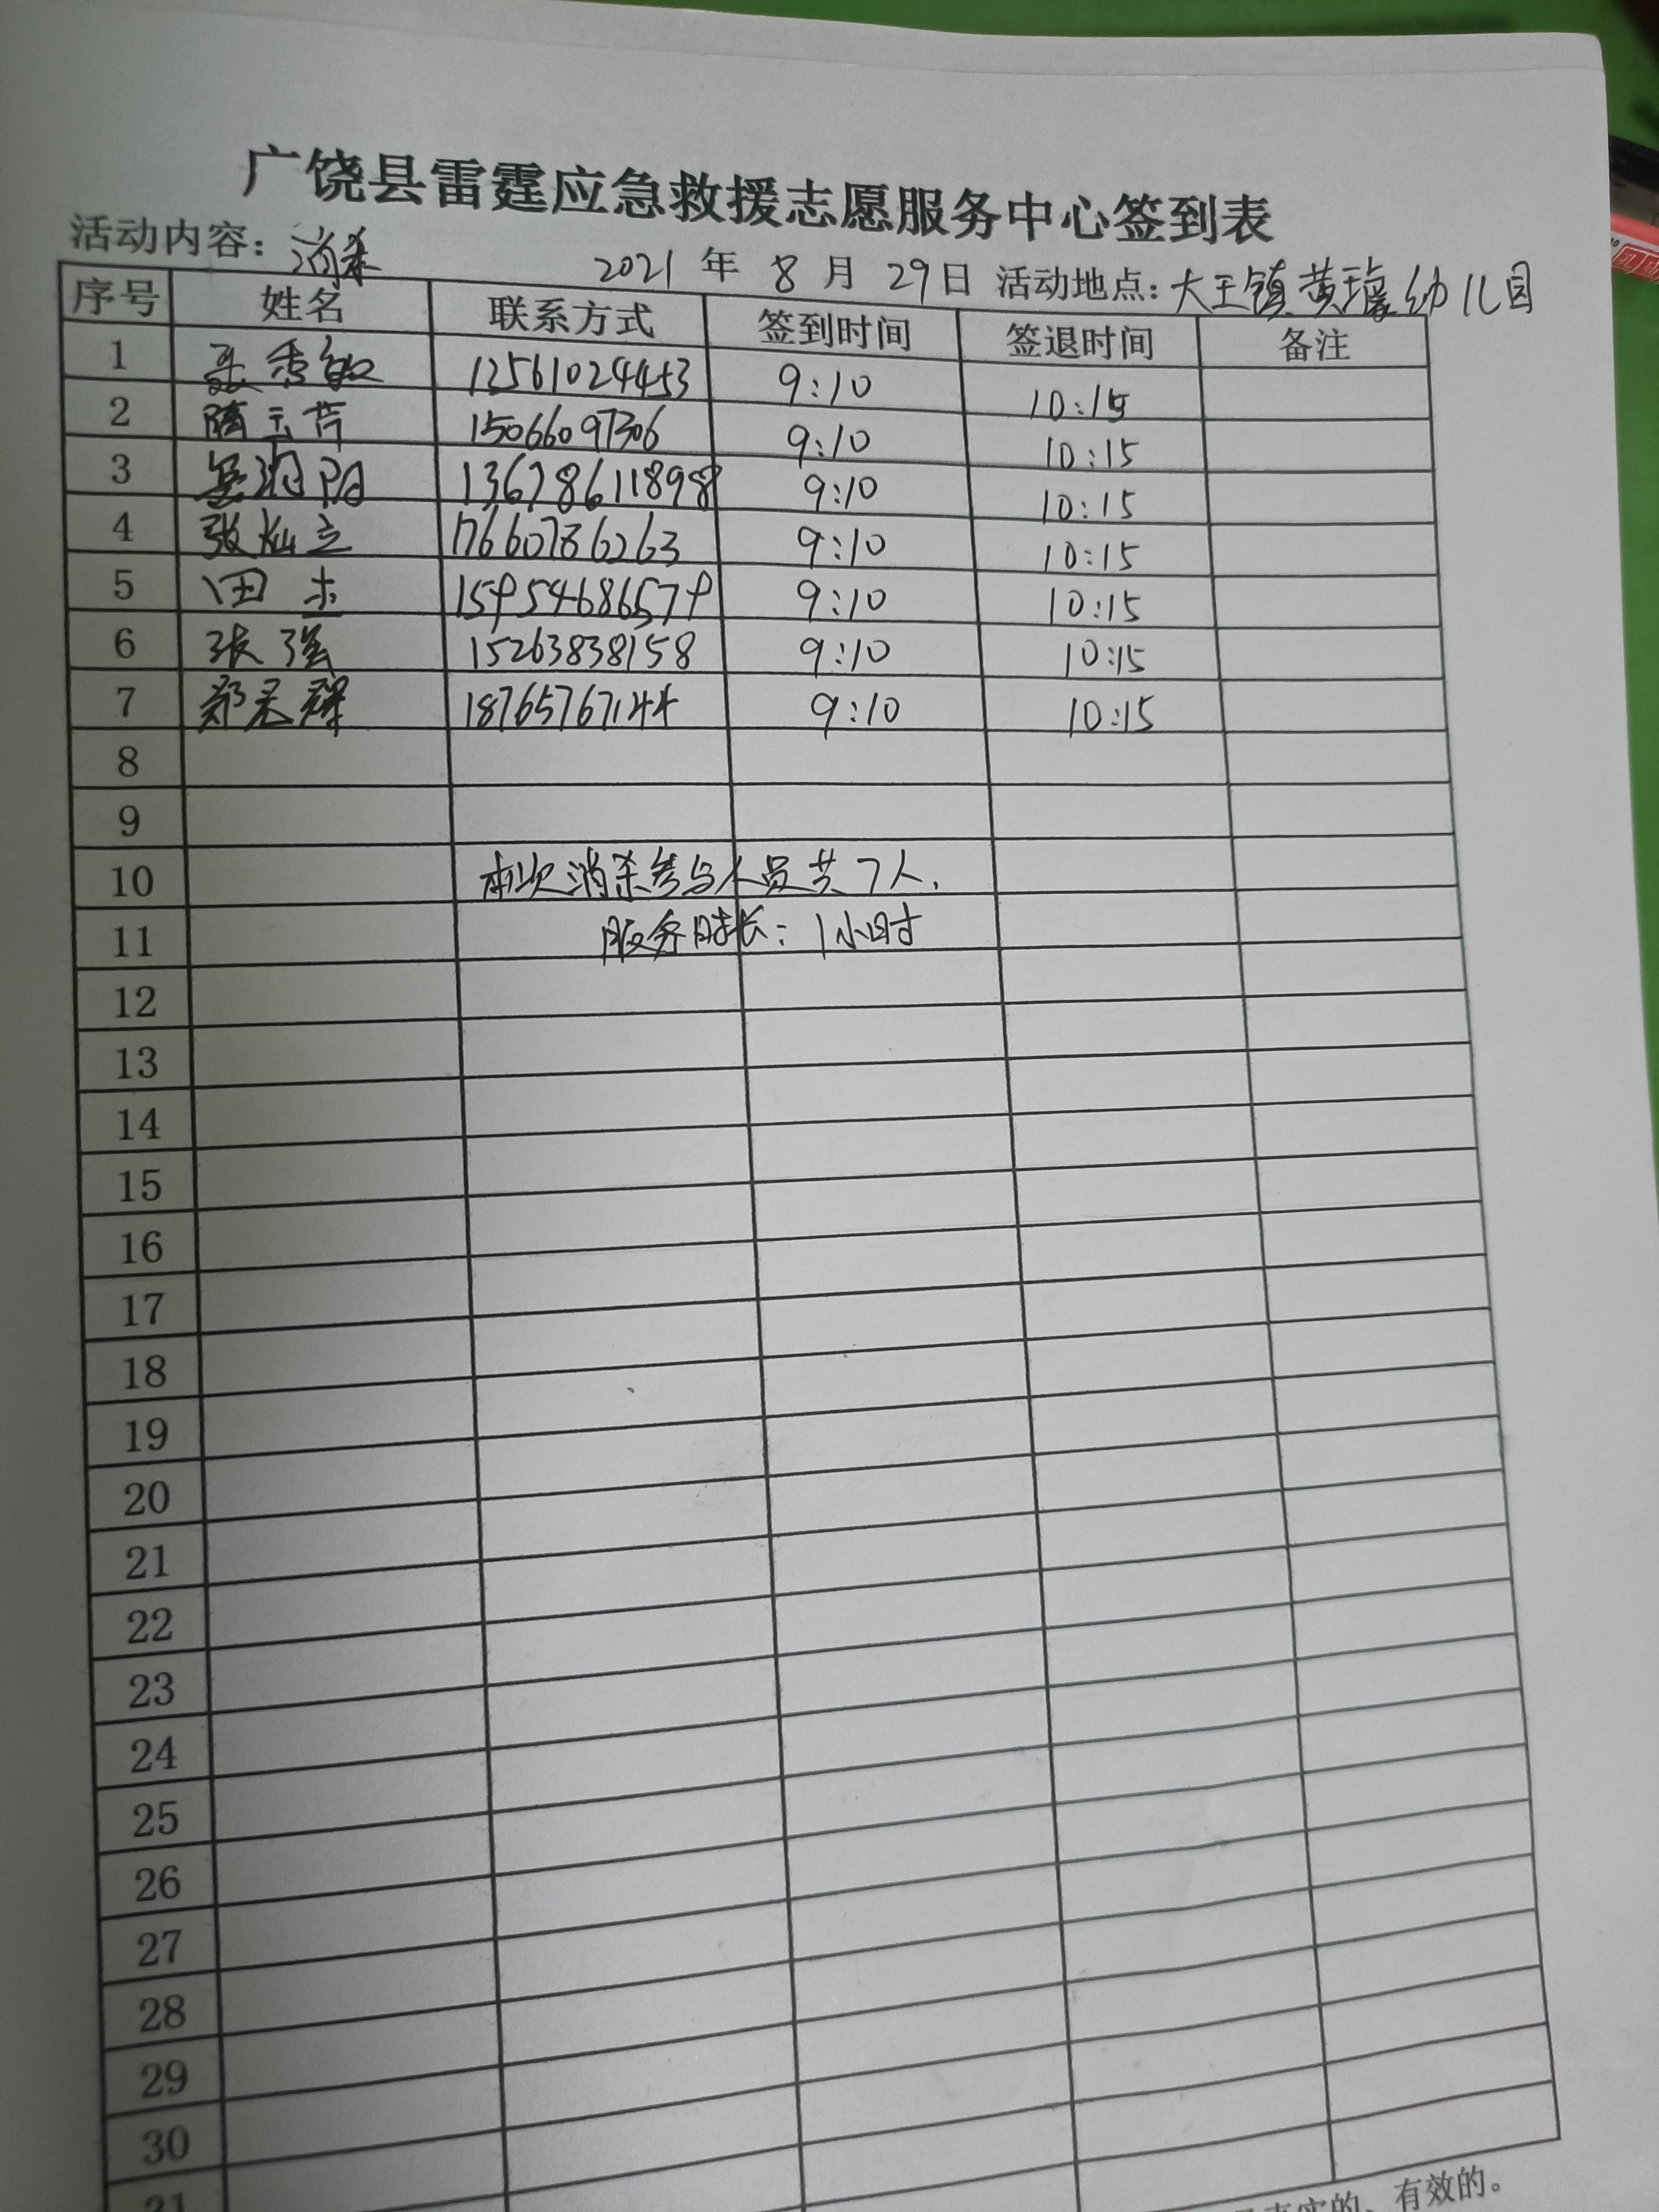 广饶县雷霆应急救援志愿服务中心签到表
活动内容：消杀 2021 年 8 月 29日 活动地点：大王镇黄璩幼儿园
序号 姓名 联系方式 签到时间 签退时间 备注
1 12561024453 9:10 10:15
2 隋云芹 15066097306 9:10 10:15
3 13678611898 9:10 10:15
4 张灿立 17660786263 9:10 10:15
5 田 9:10 10:15
6 张强 15263838158 9:10 10:15
7 郑君辉 18765767144 9:10 10:15
8
9
10 本次消杀参与人员共7人,
11 服务时长：1小时
12
13
14
15
16
17
18
19
20
21
22
23
24
25
26
27
28
29
30
31
真实的、有效的。